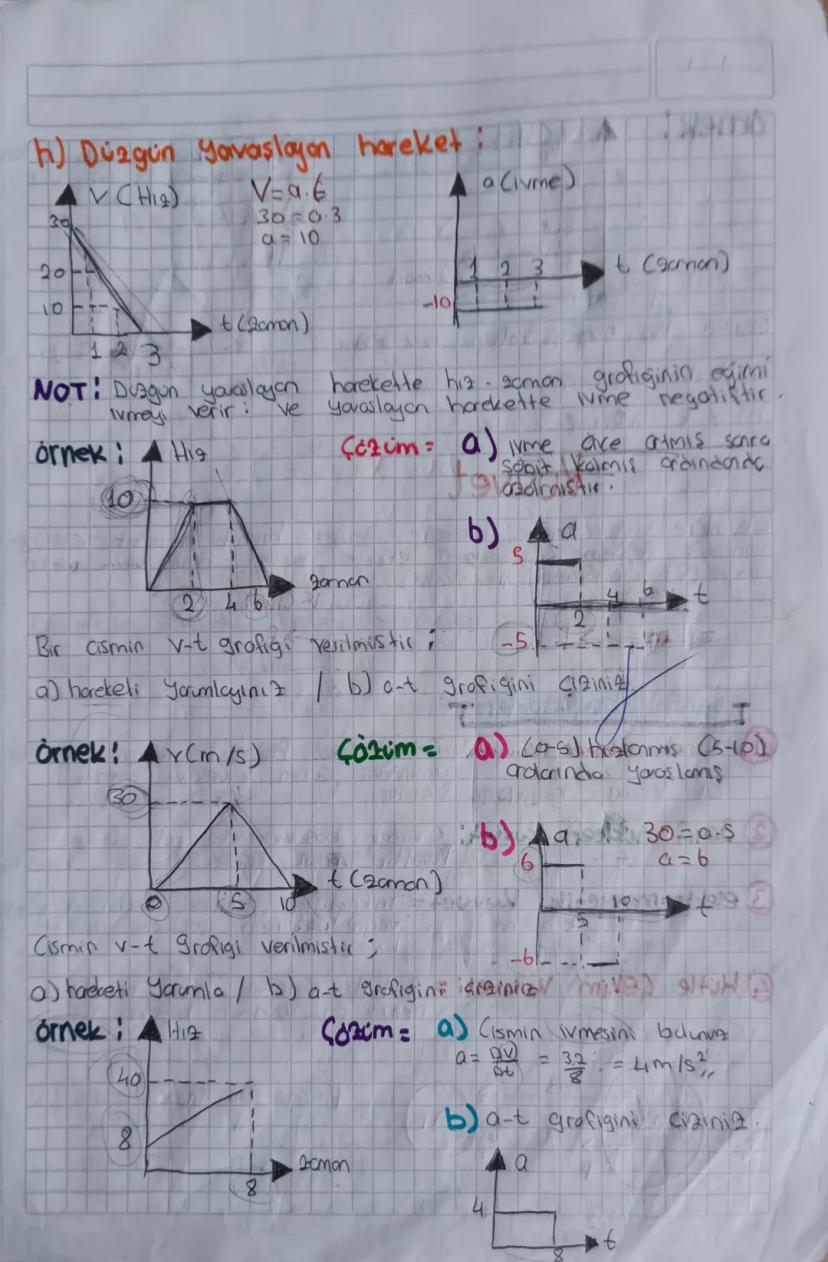 h) Düzgün yavaşlayan hareket :
V (Hız)
V = a.t
30 = a.3
a = 10
30
20
10
1 2 3
t (zaman)
a (ivme)
1 2 3
t (zaman)
-10
NOT: Düzgün yavaşlayan harekette hız - zaman grafiğinin eğimi
ivmeyi verir : ve yavaşlayan harekette ivme negatiftir.
örnek : Hız
10
2 4 6
zaman
Çözüm = a) ivme önce artmış sonra
sabit kalmış ardındanda
azalmıştır.
b) a
5
2 4 6 t
-5
Bir cismin v-t grafiği verilmiştir ;
a) hareketi yorumlayınız / b) a-t grafiğini çiziniz
örnek : v(m/s)
30
0 5 10
t (zaman)
Çözüm = a) (0-5) hızlanmış (5-10)
aralarında yavaşlamış
b) a
30 = a.5
a = 6
6
5 10 t
-6
Cismin v-t grafiği verilmiştir ;
a) hareketi yorumla / b) a-t grafiğini çiziniz
örnek : Hız
40
8
8
zaman
Çözüm = a) Cismin ivmesini bulunuz
a = ΔV/Δt = 32/8 = 4 m/s²
b) a-t grafiğini çiziniz.
a
4
8 t